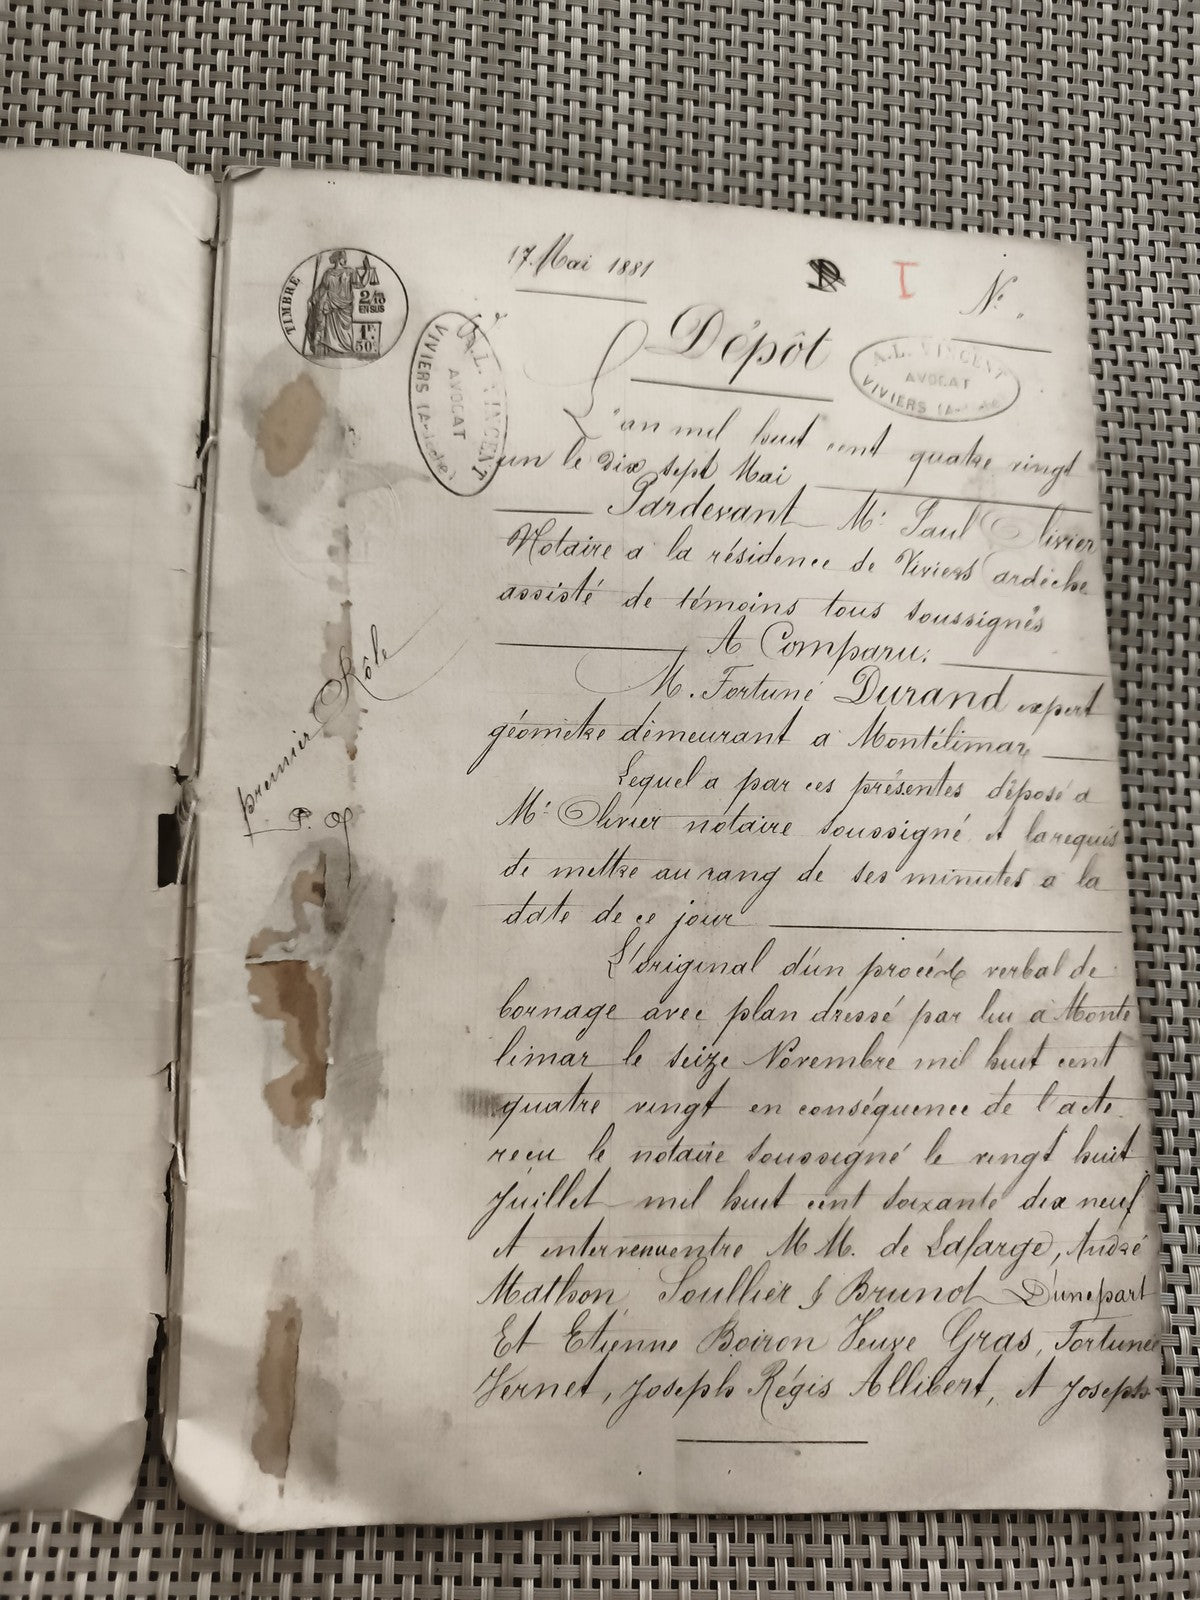 17. Mai 1881
I
N°.
TIMBRE
2/10
EN SUS
1F
50c
A.L. VINCENT
AVOCAT
VIVIERS (Ardèche)
Dépôt
A.L. VINCENT
AVOCAT
VIVIERS (Ardèche)
L'an mil huit cent quatre vingt
un le dix sept Mai
Pardevant Me Paul Olivier
Notaire a la résidence de Viviers ardèche
assisté de témoins tous soussignés
A Comparu:
M. Fortuné Durand expert
géomètre demeurant a Montélimar
Lequel a par ces présentes déposé a
Me Olivier notaire soussigné et la requis
de mettre au rang de ses minutes a la
date de ce jour
premier Rôle
P. O
L'original d'un procès verbal de
bornage avec plan dressé par lui a Monté
limar le seize Novembre mil huit cent
quatre vingt en conséquence de l'acte
recu le notaire soussigné le vingt huit
Juillet mil huit cent soixante dix neuf
et intervenu entre MM. de Lafarge, André
Mathon, Soullier & Brunot D'une part
Et Etienne Boiron Veuve Gras, Fortuné
Vernet, Joseph Régis Allibert, et Joseph